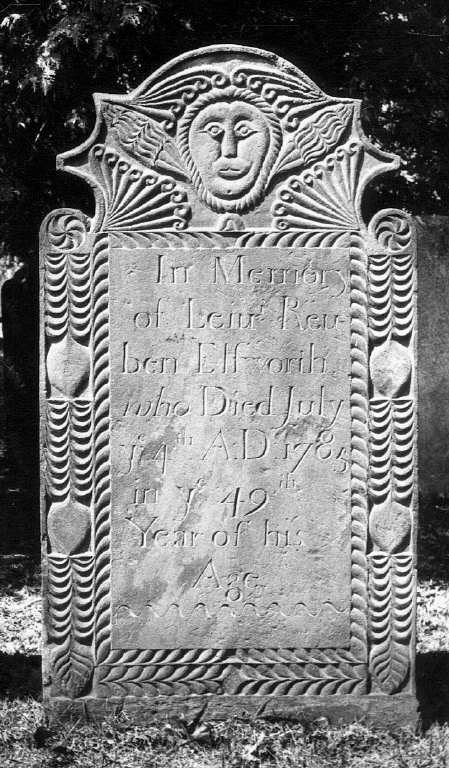 In Memory
of Leiut Reu-
ben Ellſworth,
who Died July
ye 4th A.D. 1785
in ye 49th
Year of his
Age.